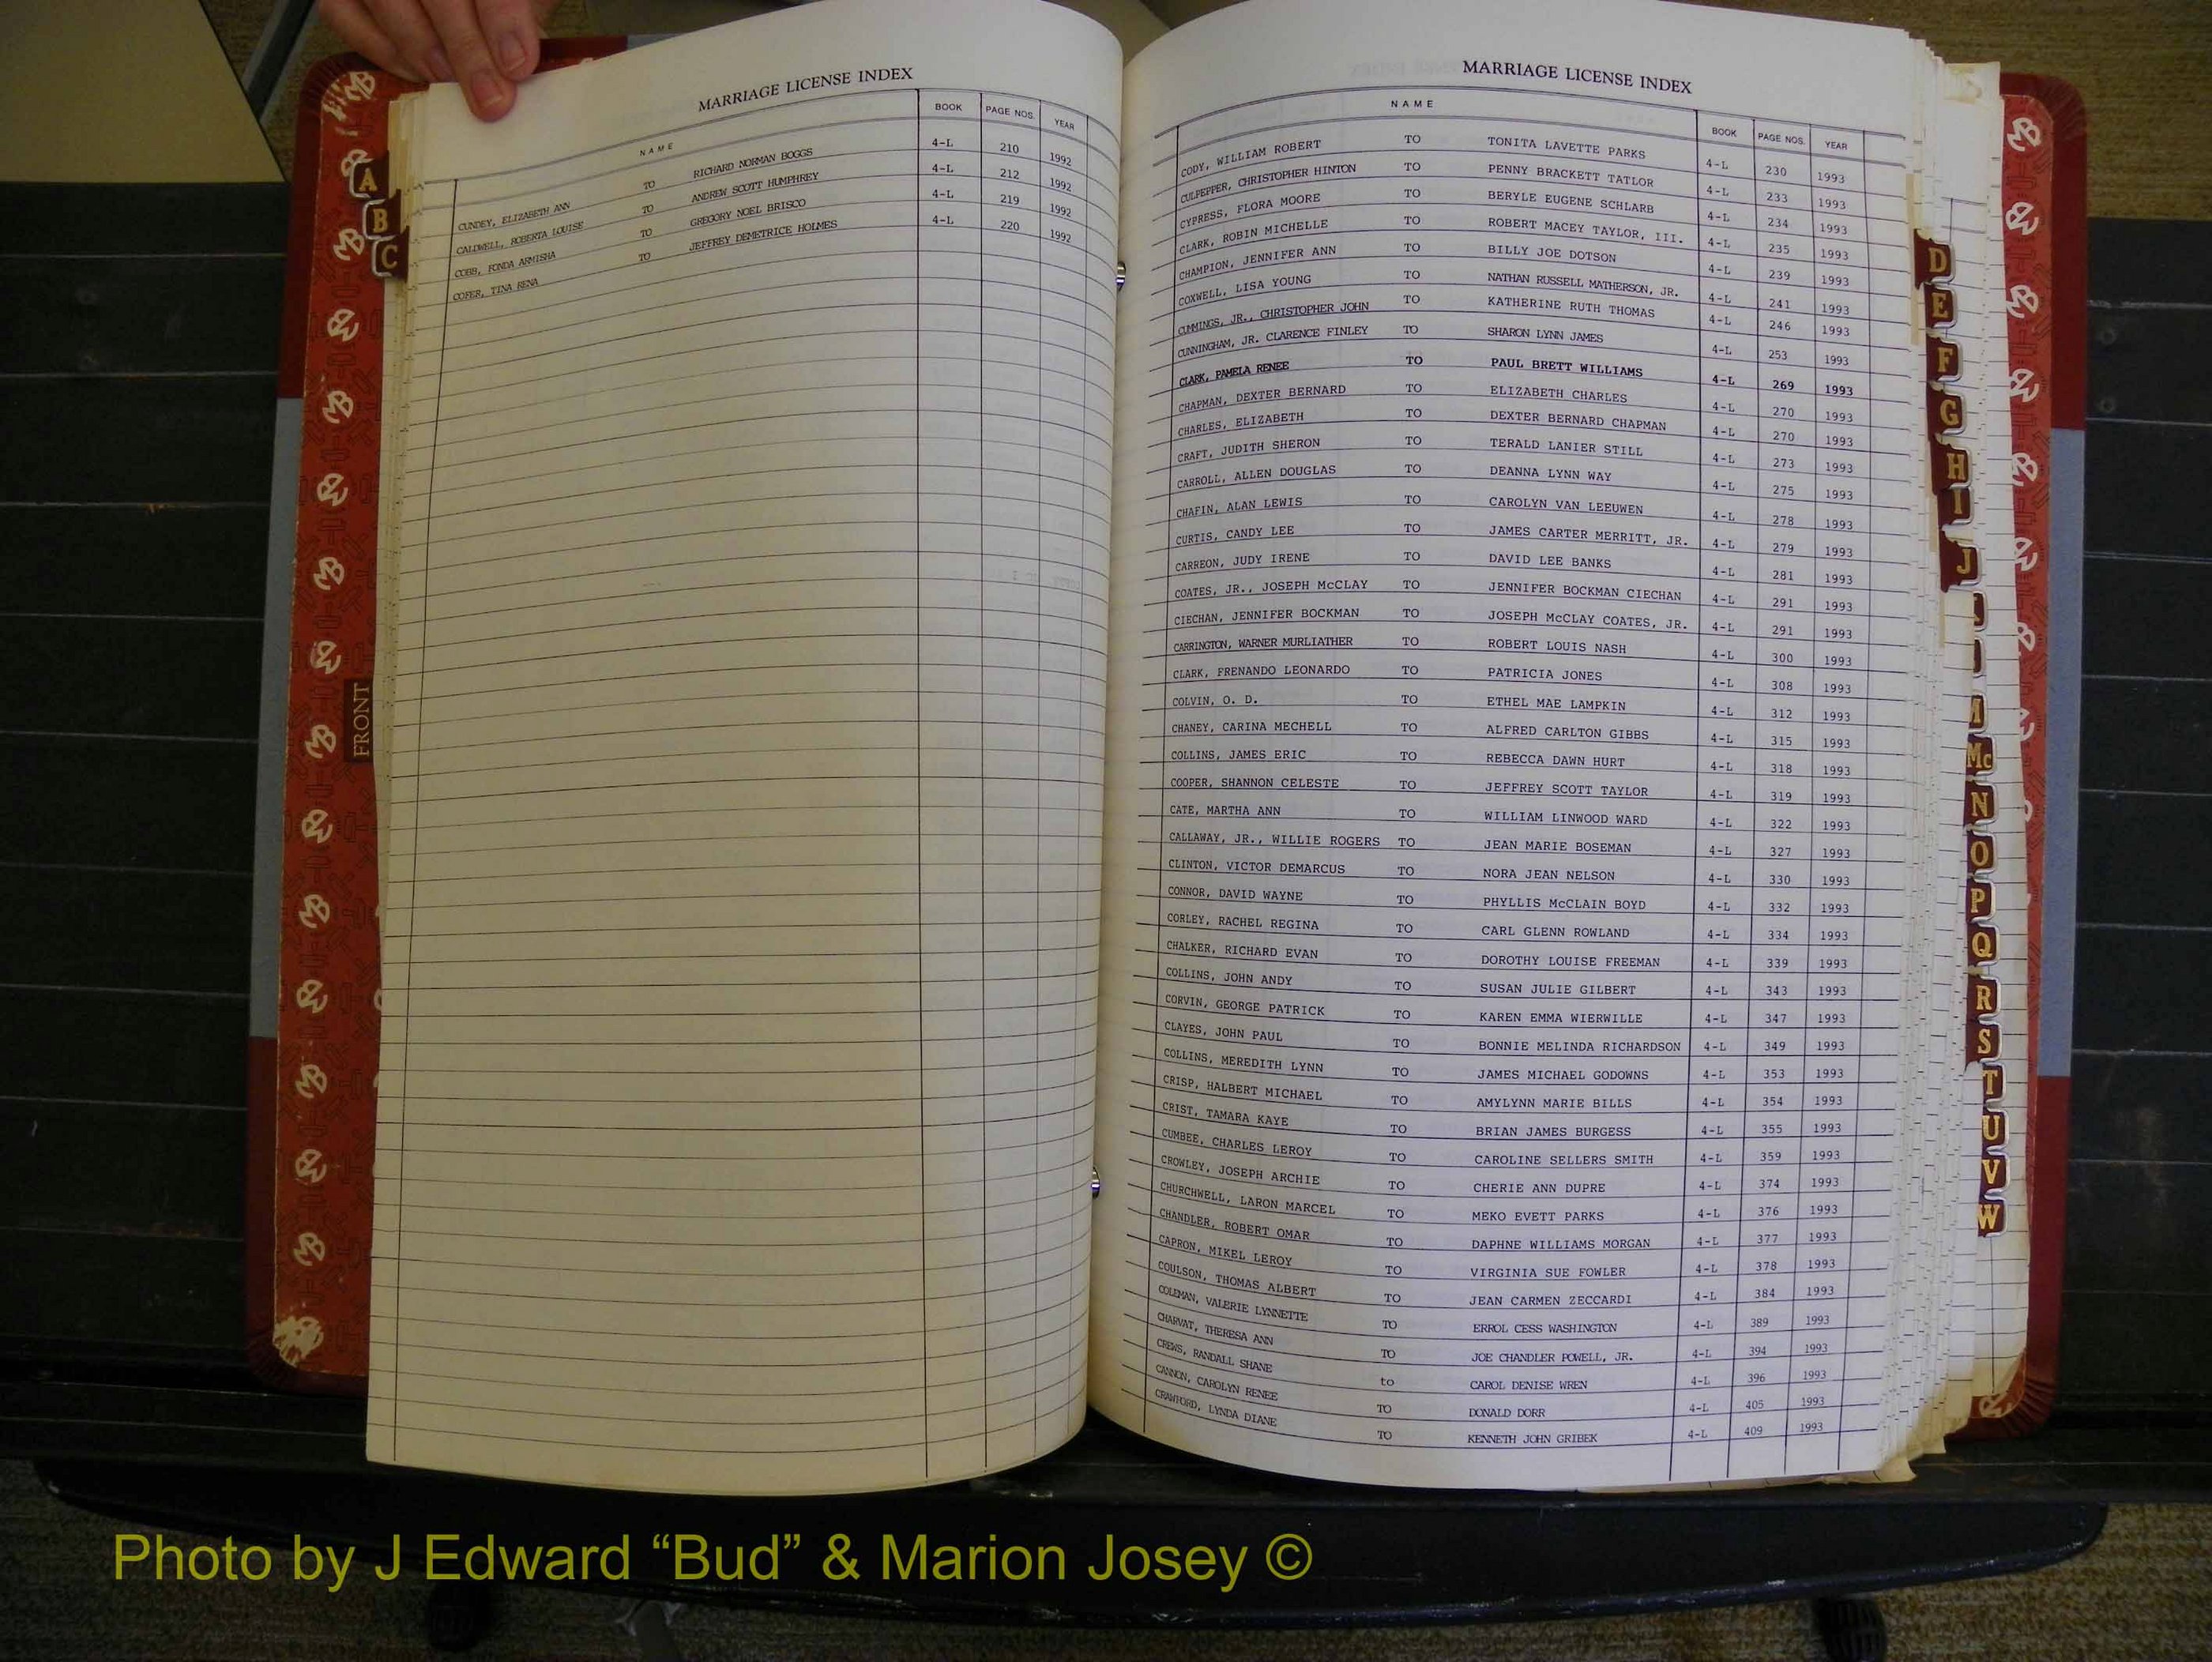 MARRIAGE LICENSE INDEX
NAME BOOK PAGE NOS. YEAR
CUNDEY, ELIZABETH ANN TO RICHARD NORMAN BOGGS 4-L 210 1992
CALDWELL, ROBERTA LOUISE TO ANDREW SCOTT HUMPHREY 4-L 212 1992
COBB, FONDA ARMISHA TO GREGORY NOEL BRISCO 4-L 219 1992
COFER, TINA RENA TO JEFFREY DEMETRICE HOLMES 4-L 220 1992
MARRIAGE LICENSE INDEX
NAME BOOK PAGE NOS. YEAR
CODY, WILLIAM ROBERT TO TONITA LAVETTE PARKS 4-L 230 1993
CULPEPPER, CHRISTOPHER HINTON TO PENNY BRACKETT TATLOR 4-L 233 1993
CYPRESS, FLORA MOORE TO BERYLE EUGENE SCHLARB 4-L 234 1993
CLARK, ROBIN MICHELLE TO ROBERT MACEY TAYLOR, III. 4-L 235 1993
CHAMPION, JENNIFER ANN TO BILLY JOE DOTSON 4-L 239 1993
COXWELL, LISA YOUNG TO NATHAN RUSSELL MATHERSON, JR. 4-L 241 1993
CUMMINGS, JR., CHRISTOPHER JOHN TO KATHERINE RUTH THOMAS 4-L 246 1993
CUNNINGHAM, JR. CLARENCE FINLEY TO SHARON LYNN JAMES 4-L 253 1993
CLARK, PAMELA RENEE TO PAUL BRETT WILLIAMS 4-L 269 1993
CHAPMAN, DEXTER BERNARD TO ELIZABETH CHARLES 4-L 270 1993
CHARLES, ELIZABETH TO DEXTER BERNARD CHAPMAN 4-L 270 1993
CRAFT, JUDITH SHERON TO TERALD LANIER STILL 4-L 273 1993
CARROLL, ALLEN DOUGLAS TO DEANNA LYNN WAY 4-L 275 1993
CHAFIN, ALAN LEWIS TO CAROLYN VAN LEEUWEN 4-L 278 1993
CURTIS, CANDY LEE TO JAMES CARTER MERRITT, JR. 4-L 279 1993
CARREON, JUDY IRENE TO DAVID LEE BANKS 4-L 281 1993
COATES, JR., JOSEPH McCLAY TO JENNIFER BOCKMAN CIECHAN 4-L 291 1993
CIECHAN, JENNIFER BOCKMAN TO JOSEPH McCLAY COATES, JR. 4-L 291 1993
CARRINGTON, WARNER MURLIATHER TO ROBERT LOUIS NASH 4-L 300 1993
CLARK, FRENANDO LEONARDO TO PATRICIA JONES 4-L 308 1993
COLVIN, O. D. TO ETHEL MAE LAMPKIN 4-L 312 1993
CHANEY, CARINA MECHELL TO ALFRED CARLTON GIBBS 4-L 315 1993
COLLINS, JAMES ERIC TO REBECCA DAWN HURT 4-L 318 1993
COOPER, SHANNON CELESTE TO JEFFREY SCOTT TAYLOR 4-L 319 1993
CATE, MARTHA ANN TO WILLIAM LINWOOD WARD 4-L 322 1993
CALLAWAY, JR., WILLIE ROGERS TO JEAN MARIE BOSEMAN 4-L 327 1993
CLINTON, VICTOR DEMARCUS TO NORA JEAN NELSON 4-L 330 1993
CONNOR, DAVID WAYNE TO PHYLLIS McCLAIN BOYD 4-L 332 1993
CORLEY, RACHEL REGINA TO CARL GLENN ROWLAND 4-L 334 1993
CHALKER, RICHARD EVAN TO DOROTHY LOUISE FREEMAN 4-L 339 1993
COLLINS, JOHN ANDY TO SUSAN JULIE GILBERT 4-L 343 1993
CORVIN, GEORGE PATRICK TO KAREN EMMA WIERWILLE 4-L 347 1993
CLAYES, JOHN PAUL TO BONNIE MELINDA RICHARDSON 4-L 349 1993
COLLINS, MEREDITH LYNN TO JAMES MICHAEL GODOWNS 4-L 353 1993
CRISP, HALBERT MICHAEL TO AMYLYNN MARIE BILLS 4-L 354 1993
CRIST, TAMARA KAYE TO BRIAN JAMES BURGESS 4-L 355 1993
CUMBEE, CHARLES LEROY TO CAROLINE SELLERS SMITH 4-L 359 1993
CROWLEY, JOSEPH ARCHIE TO CHERIE ANN DUPRE 4-L 374 1993
CHURCHWELL, LARON MARCEL TO MEKO EVETT PARKS 4-L 376 1993
CHANDLER, ROBERT OMAR TO DAPHNE WILLIAMS MORGAN 4-L 377 1993
CAPRON, MIKEL LEROY TO VIRGINIA SUE FOWLER 4-L 378 1993
COULSON, THOMAS ALBERT TO JEAN CARMEN ZECCARDI 4-L 384 1993
COLEMAN, VALERIE LYNNETTE TO ERROL CESS WASHINGTON 4-L 389 1993
CHARVAT, THERESA ANN TO JOE CHANDLER POWELL, JR. 4-L 394 1993
CREWS, RANDALL SHANE to CAROL DENISE WREN 4-L 396 1993
CANNON, CAROLYN RENEE TO DONALD DORR 4-L 405 1993
CRAWFORD, LYNDA DIANE TO KENNETH JOHN GRIBEK 4-L 409 1993
A
B
C
FRONT
D
E
F
G
H
I
J
M
Mc
N
O
P
Q
R
S
T
U
V
W
Photo by J Edward “Bud” & Marion Josey ©